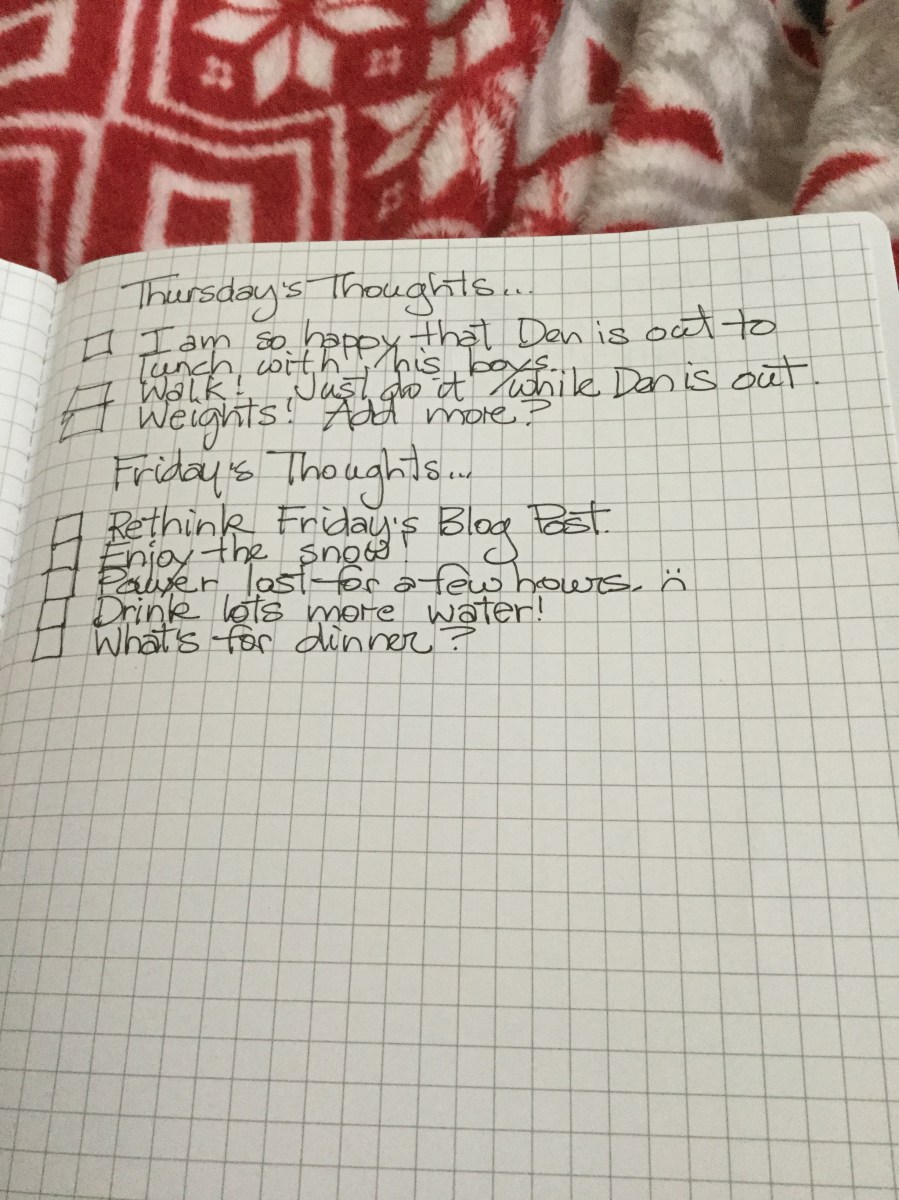 Thursday's Thoughts...
□ I am so happy that Den is out to
lunch with his boys.
□ Walk! Just do it while Den is out.
□ Weights! Add more?
Friday's Thoughts...
□ Rethink Friday's Blog Post.
□ Enjoy the snow!
□ Power lost for a few hours. :(
□ Drink lots more water!
□ What's for dinner?